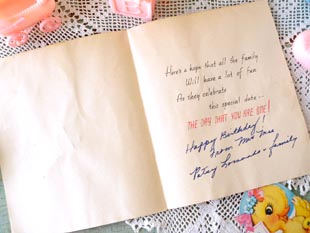 Here's a hope that all the family
Will have a lot of fun
As they celebrate
this special date...
THE DAY THAT YOU ARE ONE!
Happy Birthday!
From Mr Mrs
Patsy & family